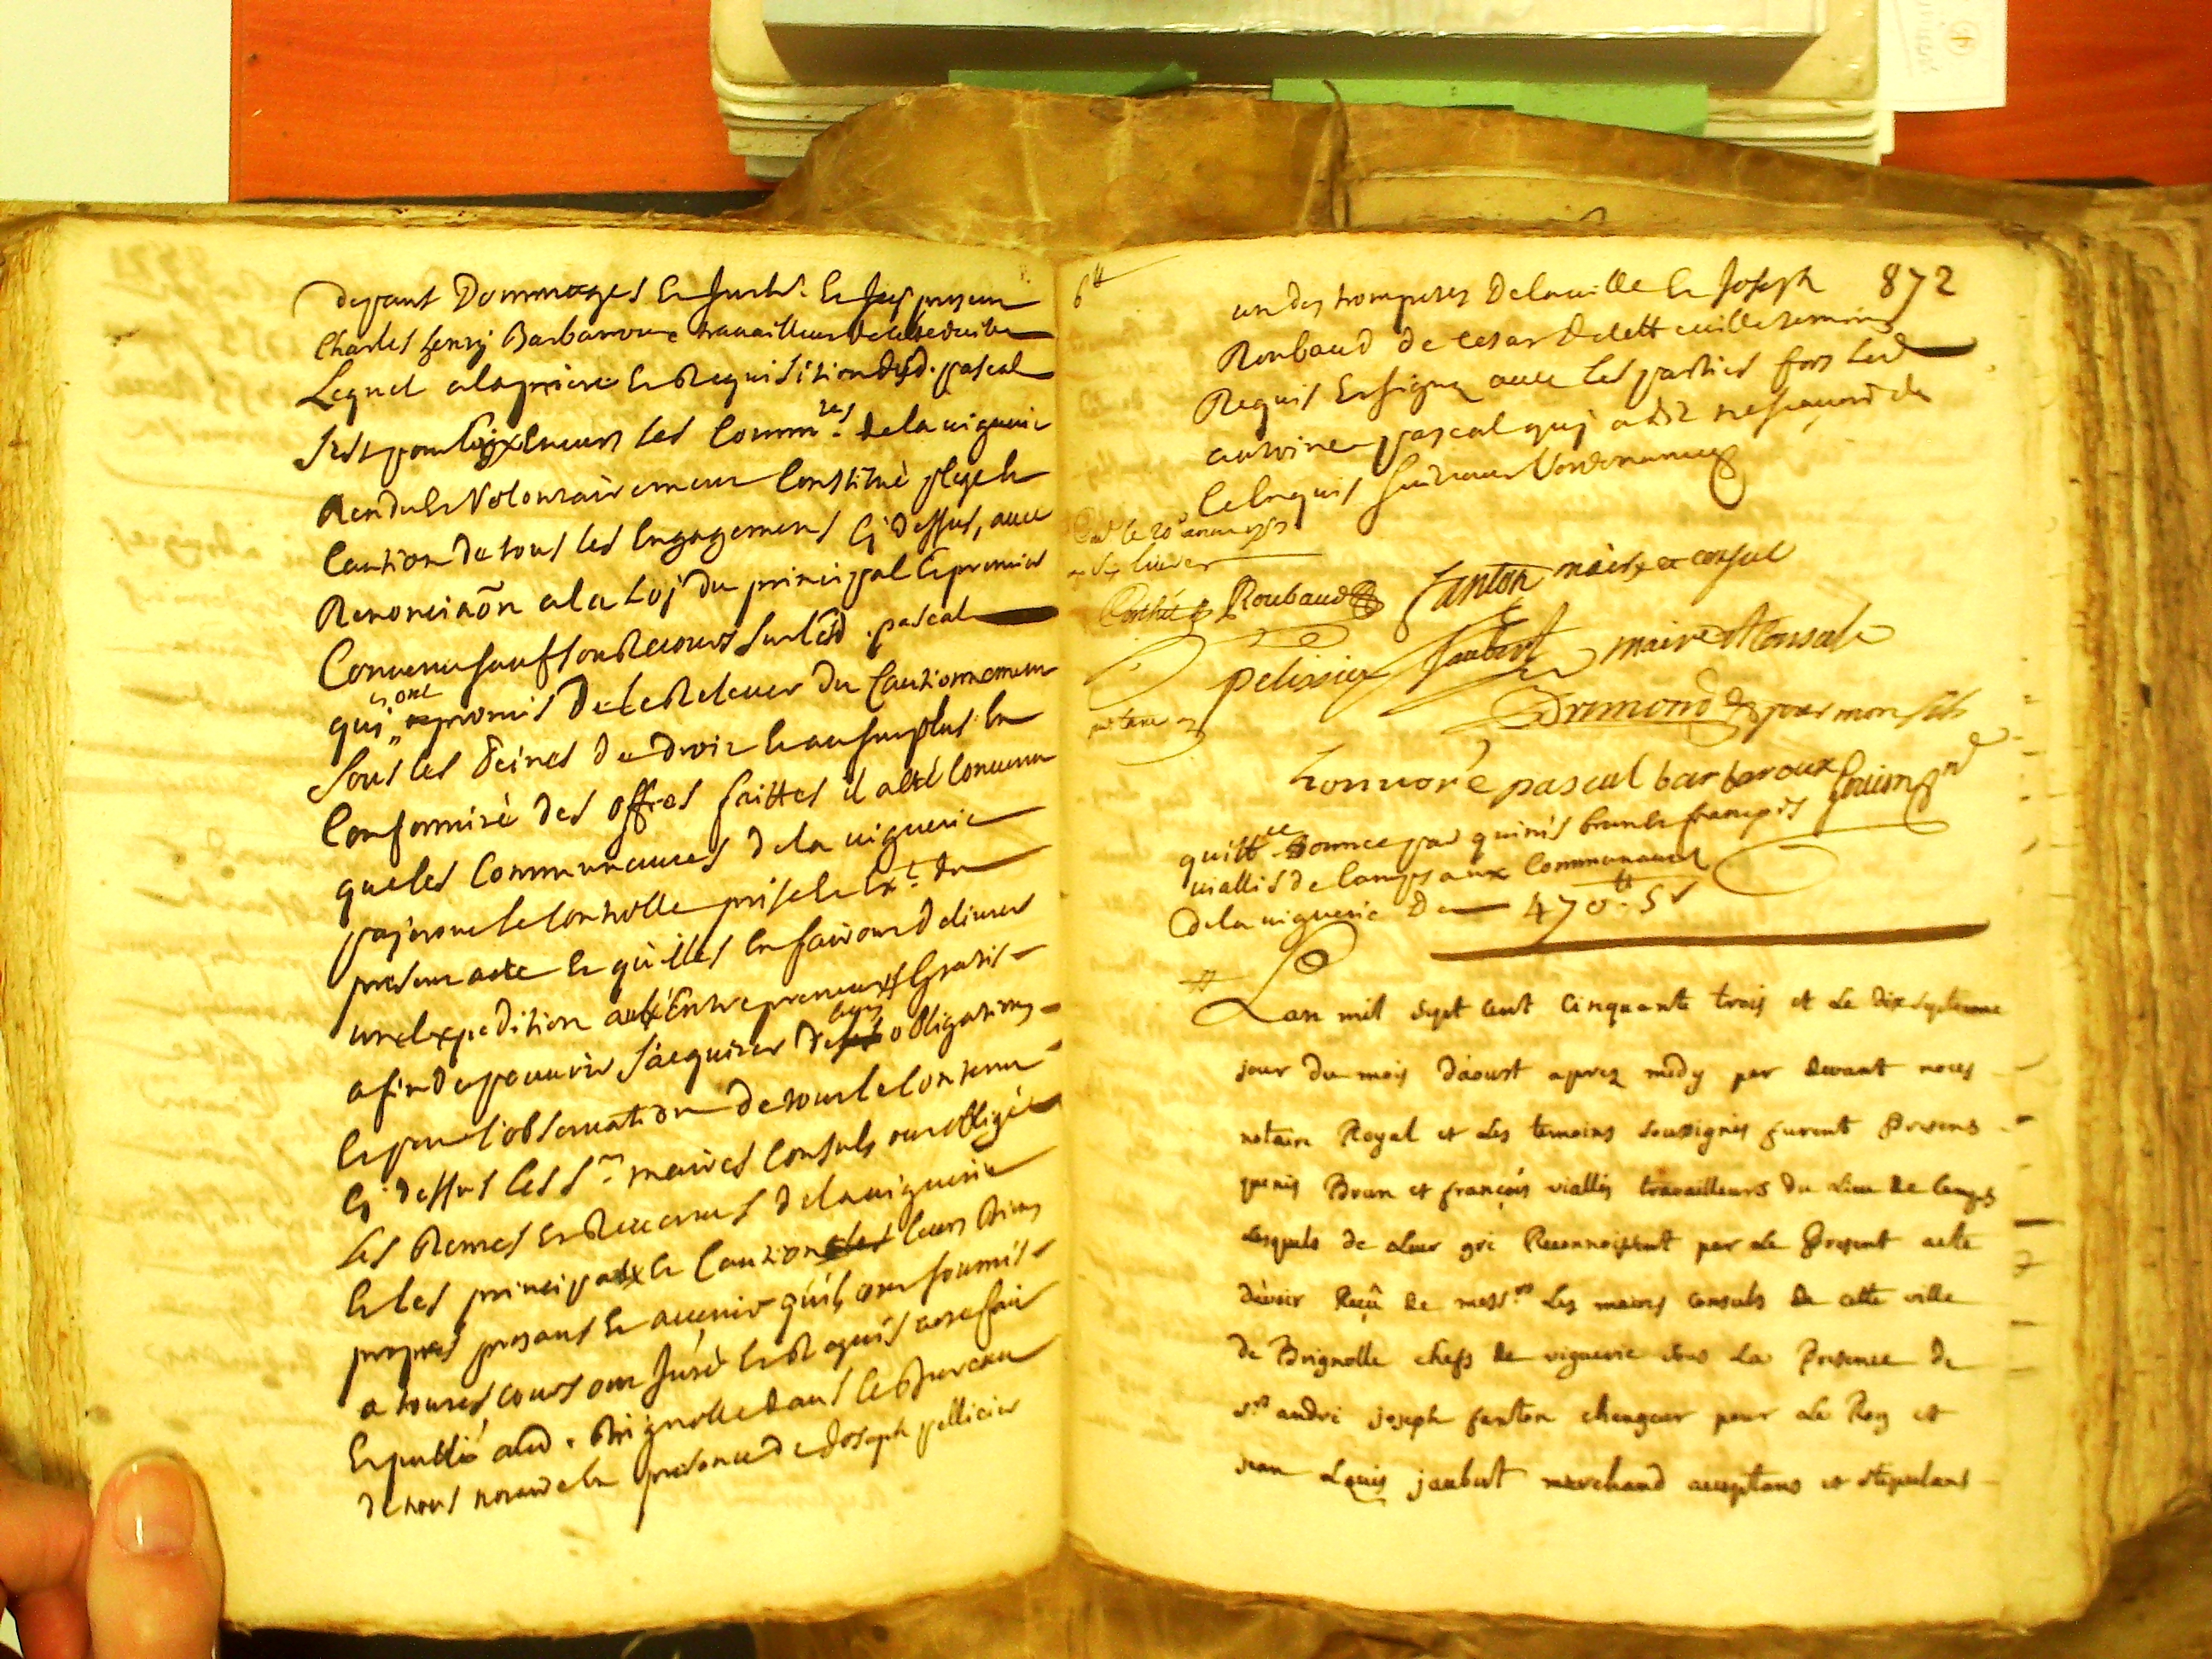 depans Dommages Et Juth. Et Icy present
Charles henry Barbaroux travailleur de cette ditte ville
Lequel a la priere Et Requisition dud. pascal
s'est pour luy Envers les Comm.tés de la viguerie
Rendu Et Volontairement Constitué plege Et
Caution de tous les Engagements Cy dessus, avec
Renonciaõn a la Loy du principal Et premier
Convenu sauf son Recours sur led. pascal
quy ont promis De le Relever Du Cautionnement
sous les Peines De Droit Et au surplus En
Conformité des offres faittes il a été Convenu
que les Communautés de la viguerie
payeront le Controlle prise Et Ext. du
present acte Et qu'elles En fairont Delivrer
une Expedition aux Entrepreneurs Gratis
afin de pouvoir s'acquiter De leurs obligations
Et pour l'observation de tout le Contenu
Cy dessus Les S.rs maires Consuls ont obligé
Les Rentes Et Revenus de la viguerie
Et les principaux Et Caution leurs Biens
propres presans Et avenir qu'ils ont soumis
a toutes cours ont Juré Et Requis acte fait
Et publié aud. Brignolle dans le Bureau
de nous notaire En presence de Joseph pellicier
6tt
872
un des trompetes De la ville Et Joseph
Roubaud de Cesar De cette ville temoins
Requis Et signez avec les parties fors led.
antoine pascal quy a dit ne sçavoir de
Ce Enquis suivant l'ordonnance
Roubaud
fanton maire et consul
pelissier
Jaubert maire Et Consul
Dramond pour mon fils
honnoré pascal barbaroux
quitt.ce Donnee par quinis brun Et françois
viallis de Camps aux Communautés
de la viguerie De 470tt 5s
Lan mil sept cent Cinquante trois et Le dix septieme
jour du mois d'aoust aprez midy par devant nous
notaire Royal et Les temoins soussignés furent Presens
quinis Brun et françois viallis travailleurs du Lieu de Camps
Lesquels de Leur gré Reconnoissent par Le Present acte
d'avoir Reçû de mess.rs Les maires Consuls de cette ville
de Brignolle chefs de viguerie sous La Presence de
s.rs andré joseph fanton changeur pour Le Roy et
jean Louis jaubert marchand acceptans et stipulant